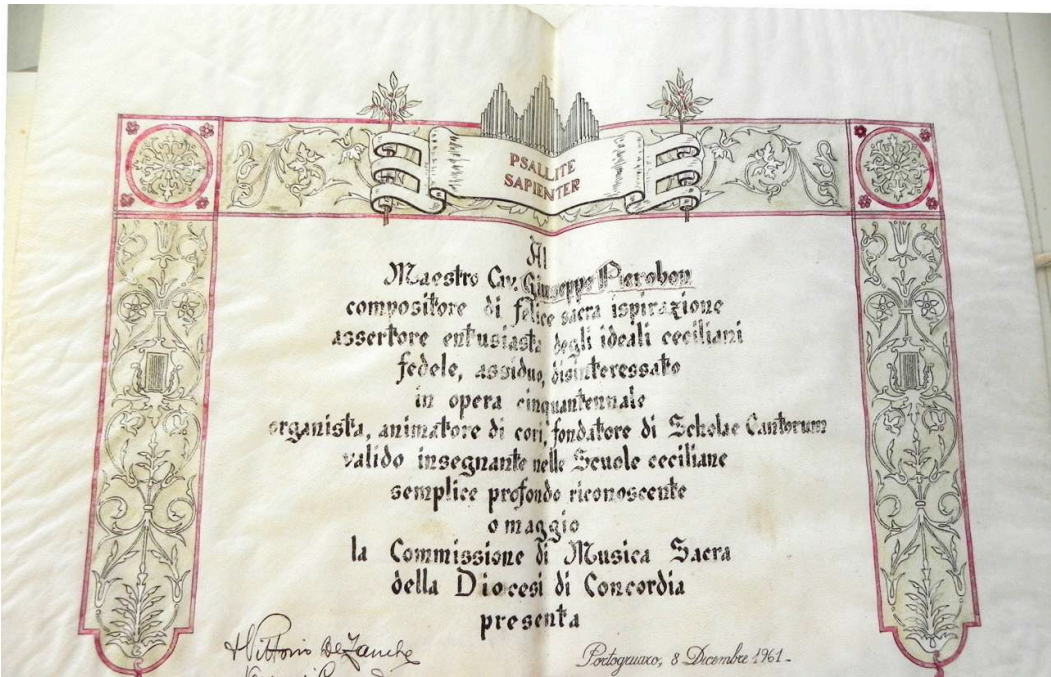 PSALLITE
SAPIENTER
Al
Maestro Cav. Giuseppe Pierobon
compositore di felice sacra ispirazione
assertore entusiasta degli ideali ceciliani
fedele, assiduo, disinteressato
in opera cinquantennale
organista, animatore di cori, fondatore di Scholae Cantorum
valido insegnante nelle Scuole ceciliane
semplice profondo riconoscente
omaggio
la Commissione di Musica Sacra
della Diocesi di Concordia
presenta
+ Vittorio De Zanche
Portogruaro, 8 Dicembre 1961-